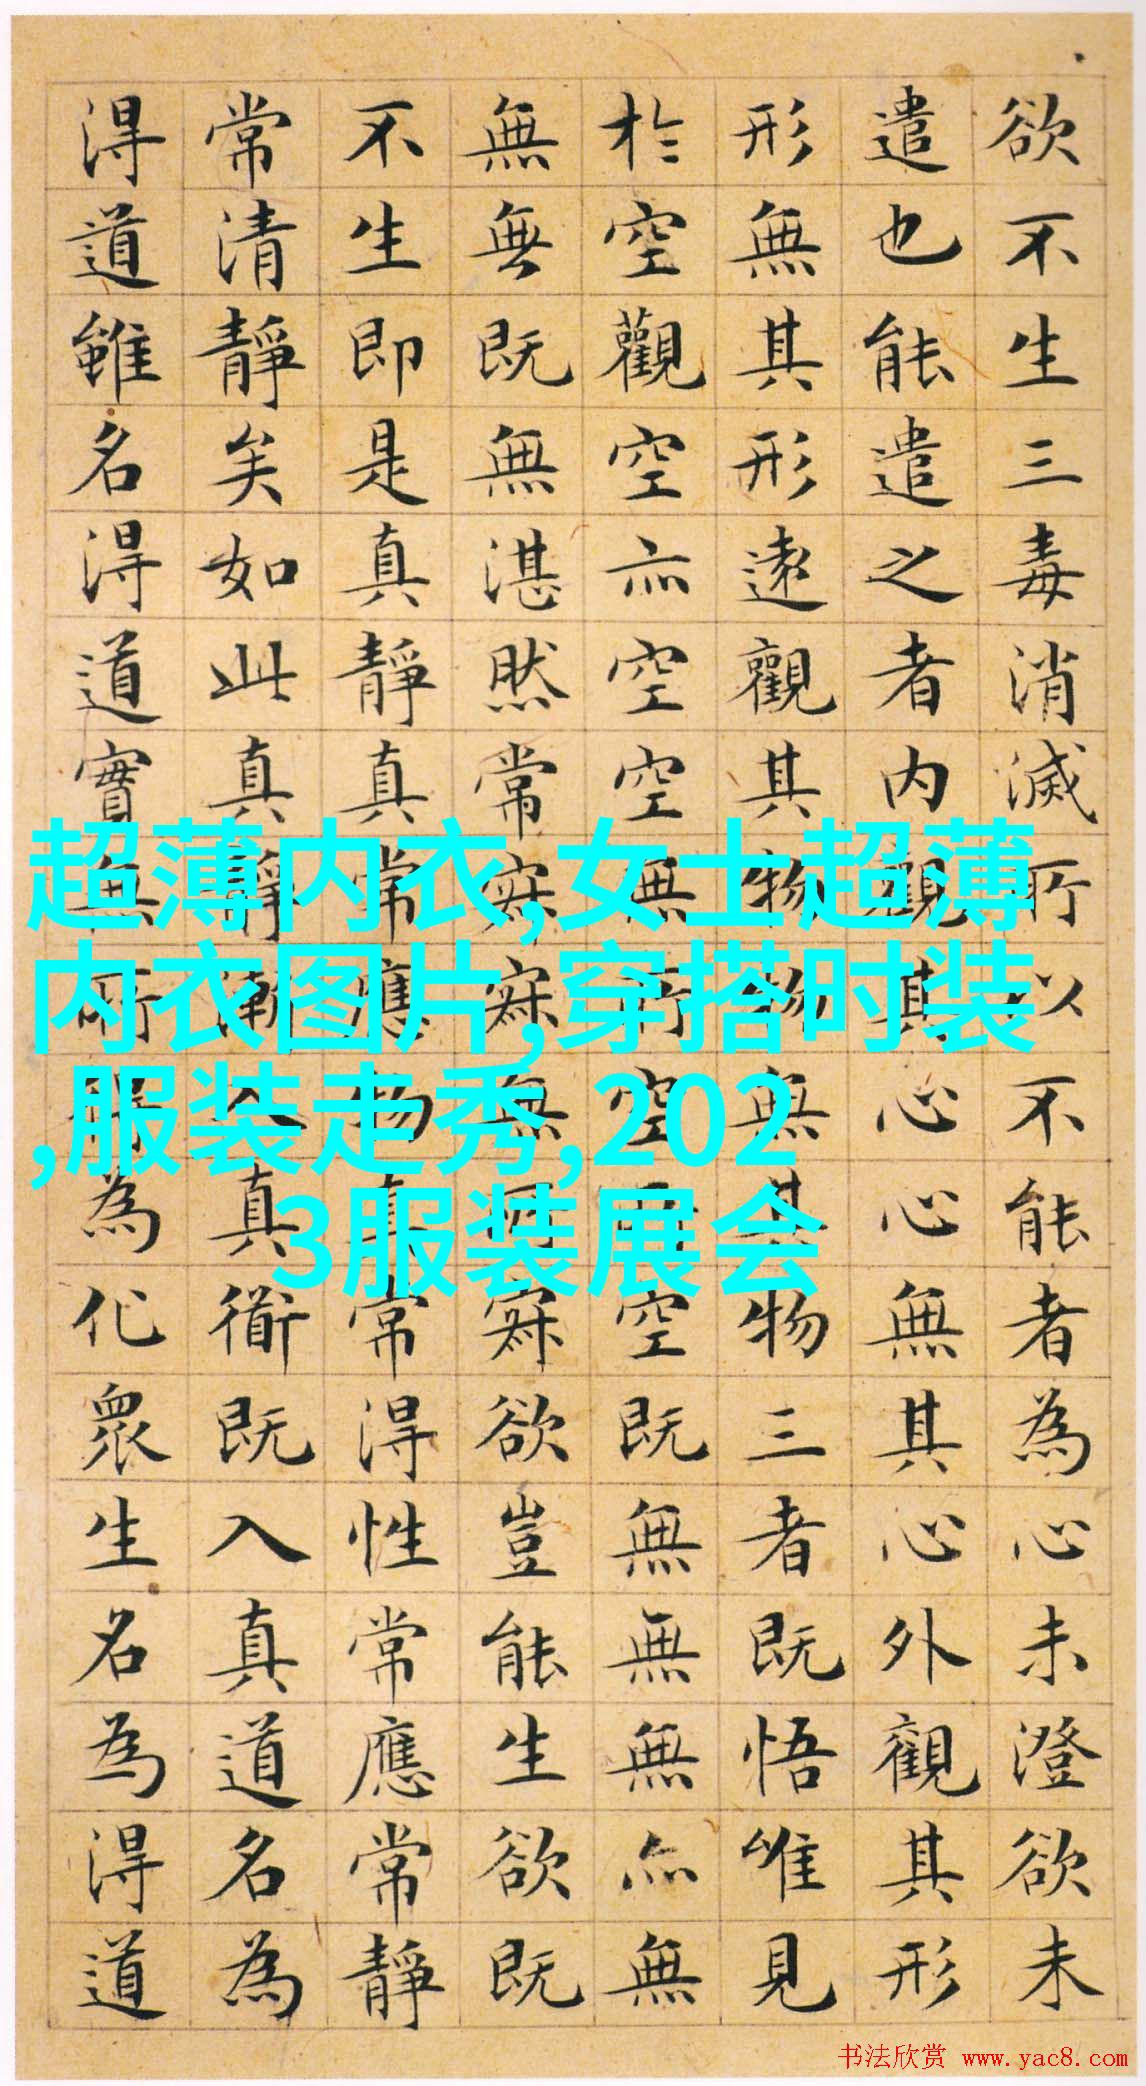 欲不生三毒消滅所以不能者為心未澄欲未
遣也能遣之者内觀其心心無其心外觀其形
形無其形遠觀其物物無其物三者既悟唯見
於空觀空亦空空無所空所空既無無無亦無
無無既無湛然常寂寂無所寂欲豈能生欲既
不生即是真靜真常應物真常得性常應常靜
常清靜矣如此真靜漸入真衜既入真道名為
得道雖名得道實無所得為化眾生名為得道
超薄内衣,女士超薄
内衣图片,穿搭时装
,服装走秀,202
3服装展会
书法欣赏 www.yac8.com